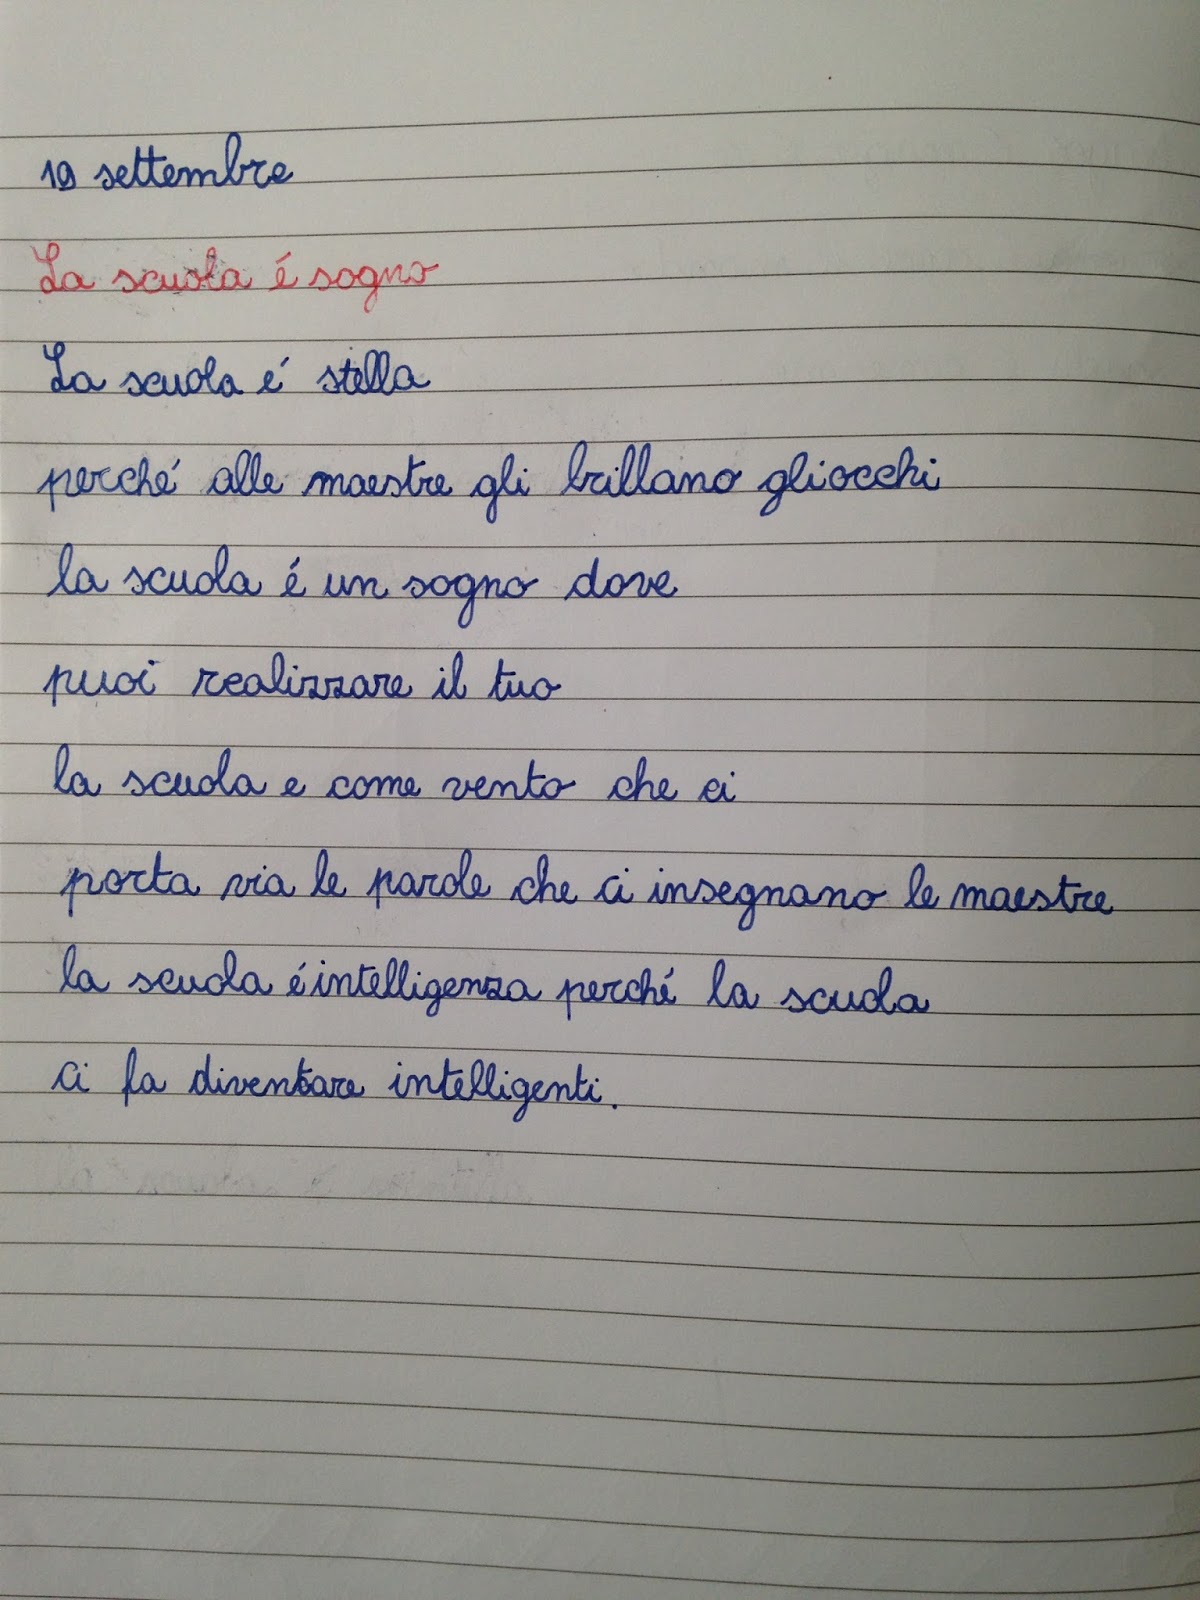 19 settembre
La scuola é sogno
La scuola é stella
perché alle maestre gli brillano gliocchi
la scuola é un sogno dove
puoi realizzare il tuo
la scuola e come vento che ci
porta via le parole che ci insegnano le maestre
la scuola éintelligenza perché la scuola
ci fa diventare intelligenti.